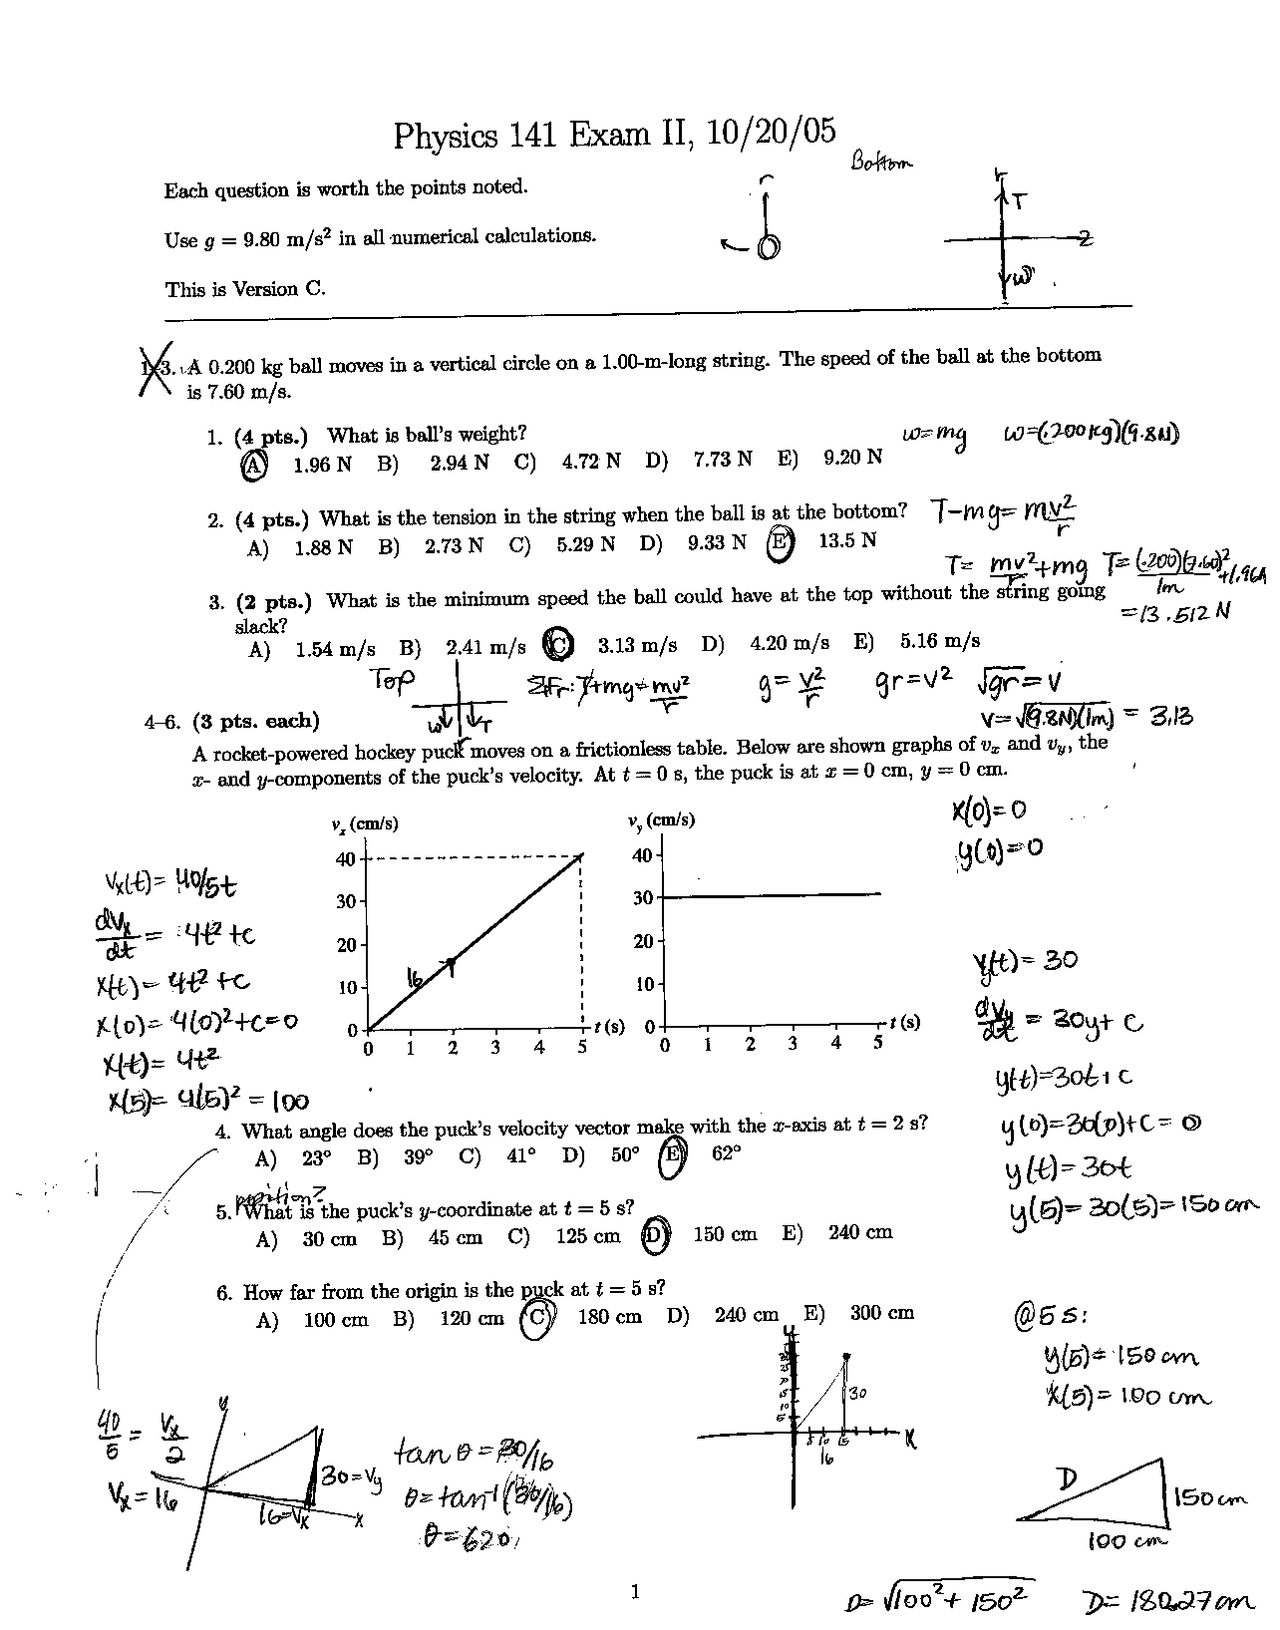 Physics 141 Exam II, 10/20/05
Bottom
Each question is worth the points noted.
r
r
T
Use g = 9.80 m/s² in all numerical calculations.
z
w
This is Version C.
1-3. A 0.200 kg ball moves in a vertical circle on a 1.00-m-long string. The speed of the ball at the bottom
is 7.60 m/s.
1. (4 pts.) What is ball's weight?
w=mg w=(.200kg)(9.8N)
A) 1.96 N B) 2.94 N C) 4.72 N D) 7.73 N E) 9.20 N
2. (4 pts.) What is the tension in the string when the ball is at the bottom?
T-mg= mv²/r
A) 1.88 N B) 2.73 N C) 5.29 N D) 9.33 N E) 13.5 N
T= mv²/r +mg T= (.200)(7.60)²/1m +1.96N
=13.512 N
3. (2 pts.) What is the minimum speed the ball could have at the top without the string going
slack?
A) 1.54 m/s B) 2.41 m/s C) 3.13 m/s D) 4.20 m/s E) 5.16 m/s
Top
w T
ΣFr: T+mg= mv²/r g= v²/r gr=v² √gr=v
v=√(9.8N)(1m) = 3.13
4–6. (3 pts. each)
A rocket-powered hockey puck moves on a frictionless table. Below are shown graphs of vx and vy, the
x- and y-components of the puck's velocity. At t = 0 s, the puck is at x = 0 cm, y = 0 cm.
x(0)=0
y(0)=0
vx (cm/s)
40
30
20
10
0
16
0 1 2 3 4 5 t (s)
vy (cm/s)
40
30
20
10
0
0 1 2 3 4 5 t (s)
Vx(t)= 40/5t
dVx/dt = 4t²+c
x(t)= 4t²+c
x(0)= 4(0)²+c=0
x(t)= 4t²
x(5)= 4(5)² = 100
y(t)= 30
dvy/dt = 30y+ C
y(t)=30t+C
y(0)=30(0)+C= 0
y(t)= 30t
y(5)= 30(5)=150 cm
4. What angle does the puck's velocity vector make with the x-axis at t = 2 s?
A) 23° B) 39° C) 41° D) 50° E) 62°
position?
5. What is the puck's y-coordinate at t = 5 s?
A) 30 cm B) 45 cm C) 125 cm D) 150 cm E) 240 cm
6. How far from the origin is the puck at t = 5 s?
A) 100 cm B) 120 cm C) 180 cm D) 240 cm E) 300 cm
@5 s:
y(5)= 150 cm
x(5)= 100 cm
40/5 = Vx/2
Vx=16
y
30=Vy
16=Vx
x
tan θ = 30/16
θ=tan⁻¹(30/16)
θ=62°
y
30
x
16
D
150cm
100 cm
1
D= √100²+ 150² D= 180.27cm